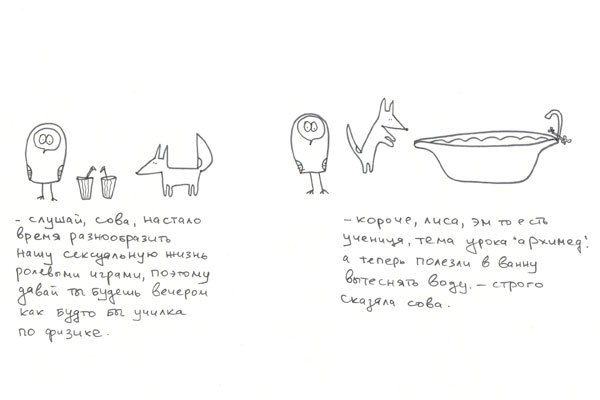 - слушай, сова, настало
время разнообразить
нашу сексуальную жизнь
ролевыми играми, поэтому
давай ты будешь вечером
как будто бы училка
по физике.
- короче, лиса, эм то есть
ученица, тема урока "архимед".
а теперь полезли в ванну
вытеснять воду. - строго
сказала сова.